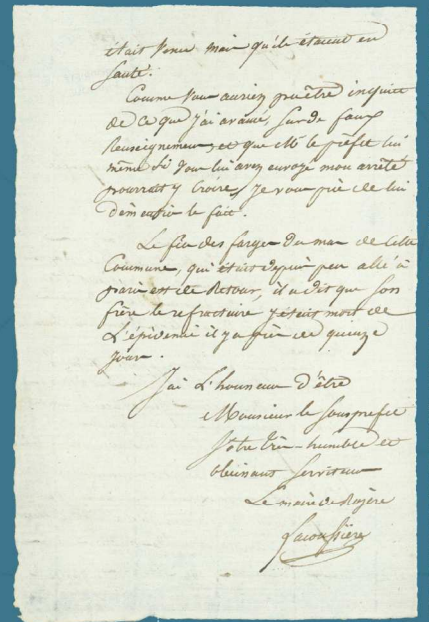 était venu mais qu'ils étaient en
santé.
Comme vous auriez pu être inquiet
de ce que j'ai avancé, sur de faux
Renseignements, et que Mr le préfet lui
même si vous lui avez envoyé mon arrêté
pourrait y croire, je vous prie de lui
démentir le fait.
Le fils des farges du mas de cette
Commune, qui était depuis peu allé à
paris est de Retour, il a dit que son
frère le refractaire y était mort de
L'épidémie il y a près de quinze
jours.
J'ai L'honneur d'être
Monsieur le Sousprefet
Votre très humble et
obéissant Serviteur
Le maire de Rozière
Lacoussière